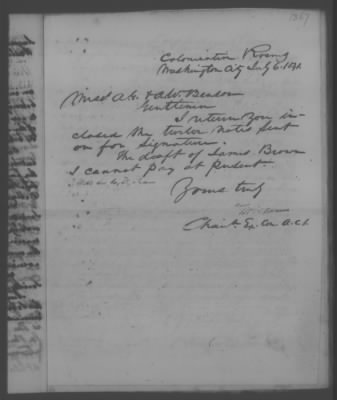 Colonization Rooms
Washington City July 6. 1871.
Messrs A. G. & A. W. Benson
Gentlemen
I return you in-
closed the twelve notes sent
on for signature.
The draft of James Brown
I cannot pay at present
Yours truly
Chair. Ex. Com A. C. S.